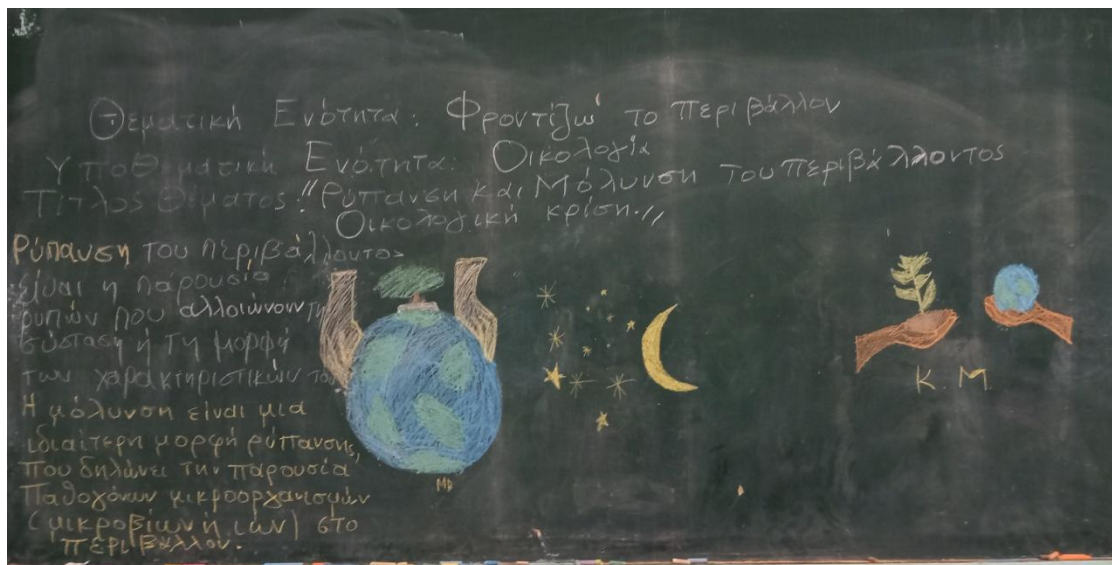 Θεματική Ενότητα: Φροντίζω το περιβάλλον
Υποθεματική Ενότητα: Οικολογία
Τίτλος Θέματος: "Ρύπανση και Μόλυνση του περιβάλλοντος
Οικολογική κρίση."
Ρύπανση του περιβάλλοντος
είναι η παρουσία
ρυπών που αλλοιώνουν τη
σύσταση ή τη μορφή
των χαρακτηριστικών του
Η μόλυνση είναι μια
ιδιαίτερη μορφή ρύπανσης,
που δηλώνει την παρουσία
Παθογόνων μικροοργανισμών
(μικροβίων ή ιών) στο
περιβάλλον.
MD
Κ. Μ.